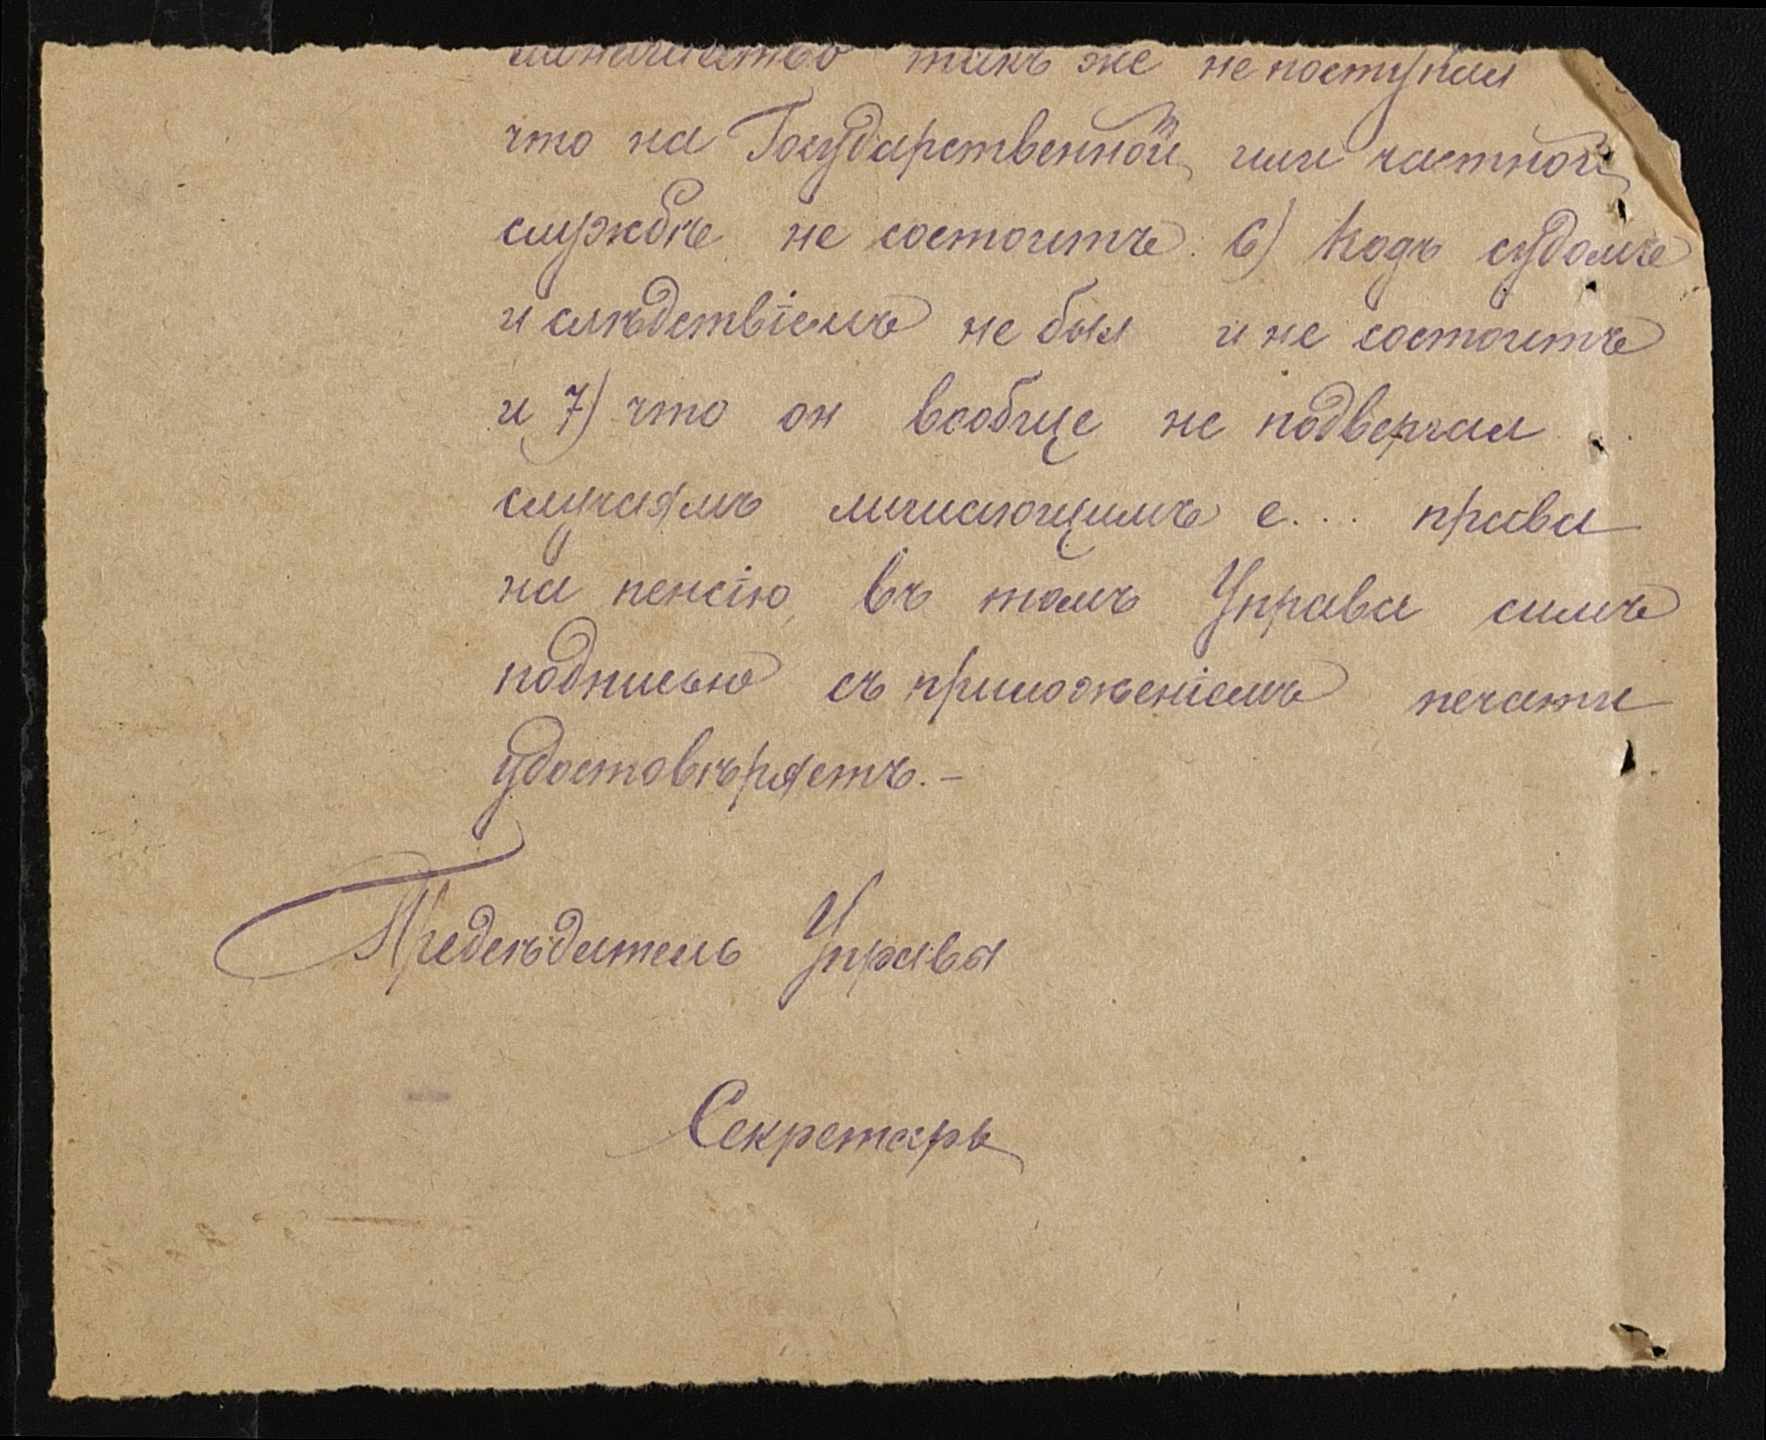 такъ же не поступил
что на Государственной или частной
службѣ не состоитъ 6) Подъ судомъ
и слѣдствіемъ не был и не состоитъ
и 7) что он вообще не подвергал
случаямъ лишающимъ е.... права
на пенсію, въ томъ Управа симъ
подписью съ приложеніемъ печати
удостовѣряетъ. –
Предсѣдатель Управы
Секретарь